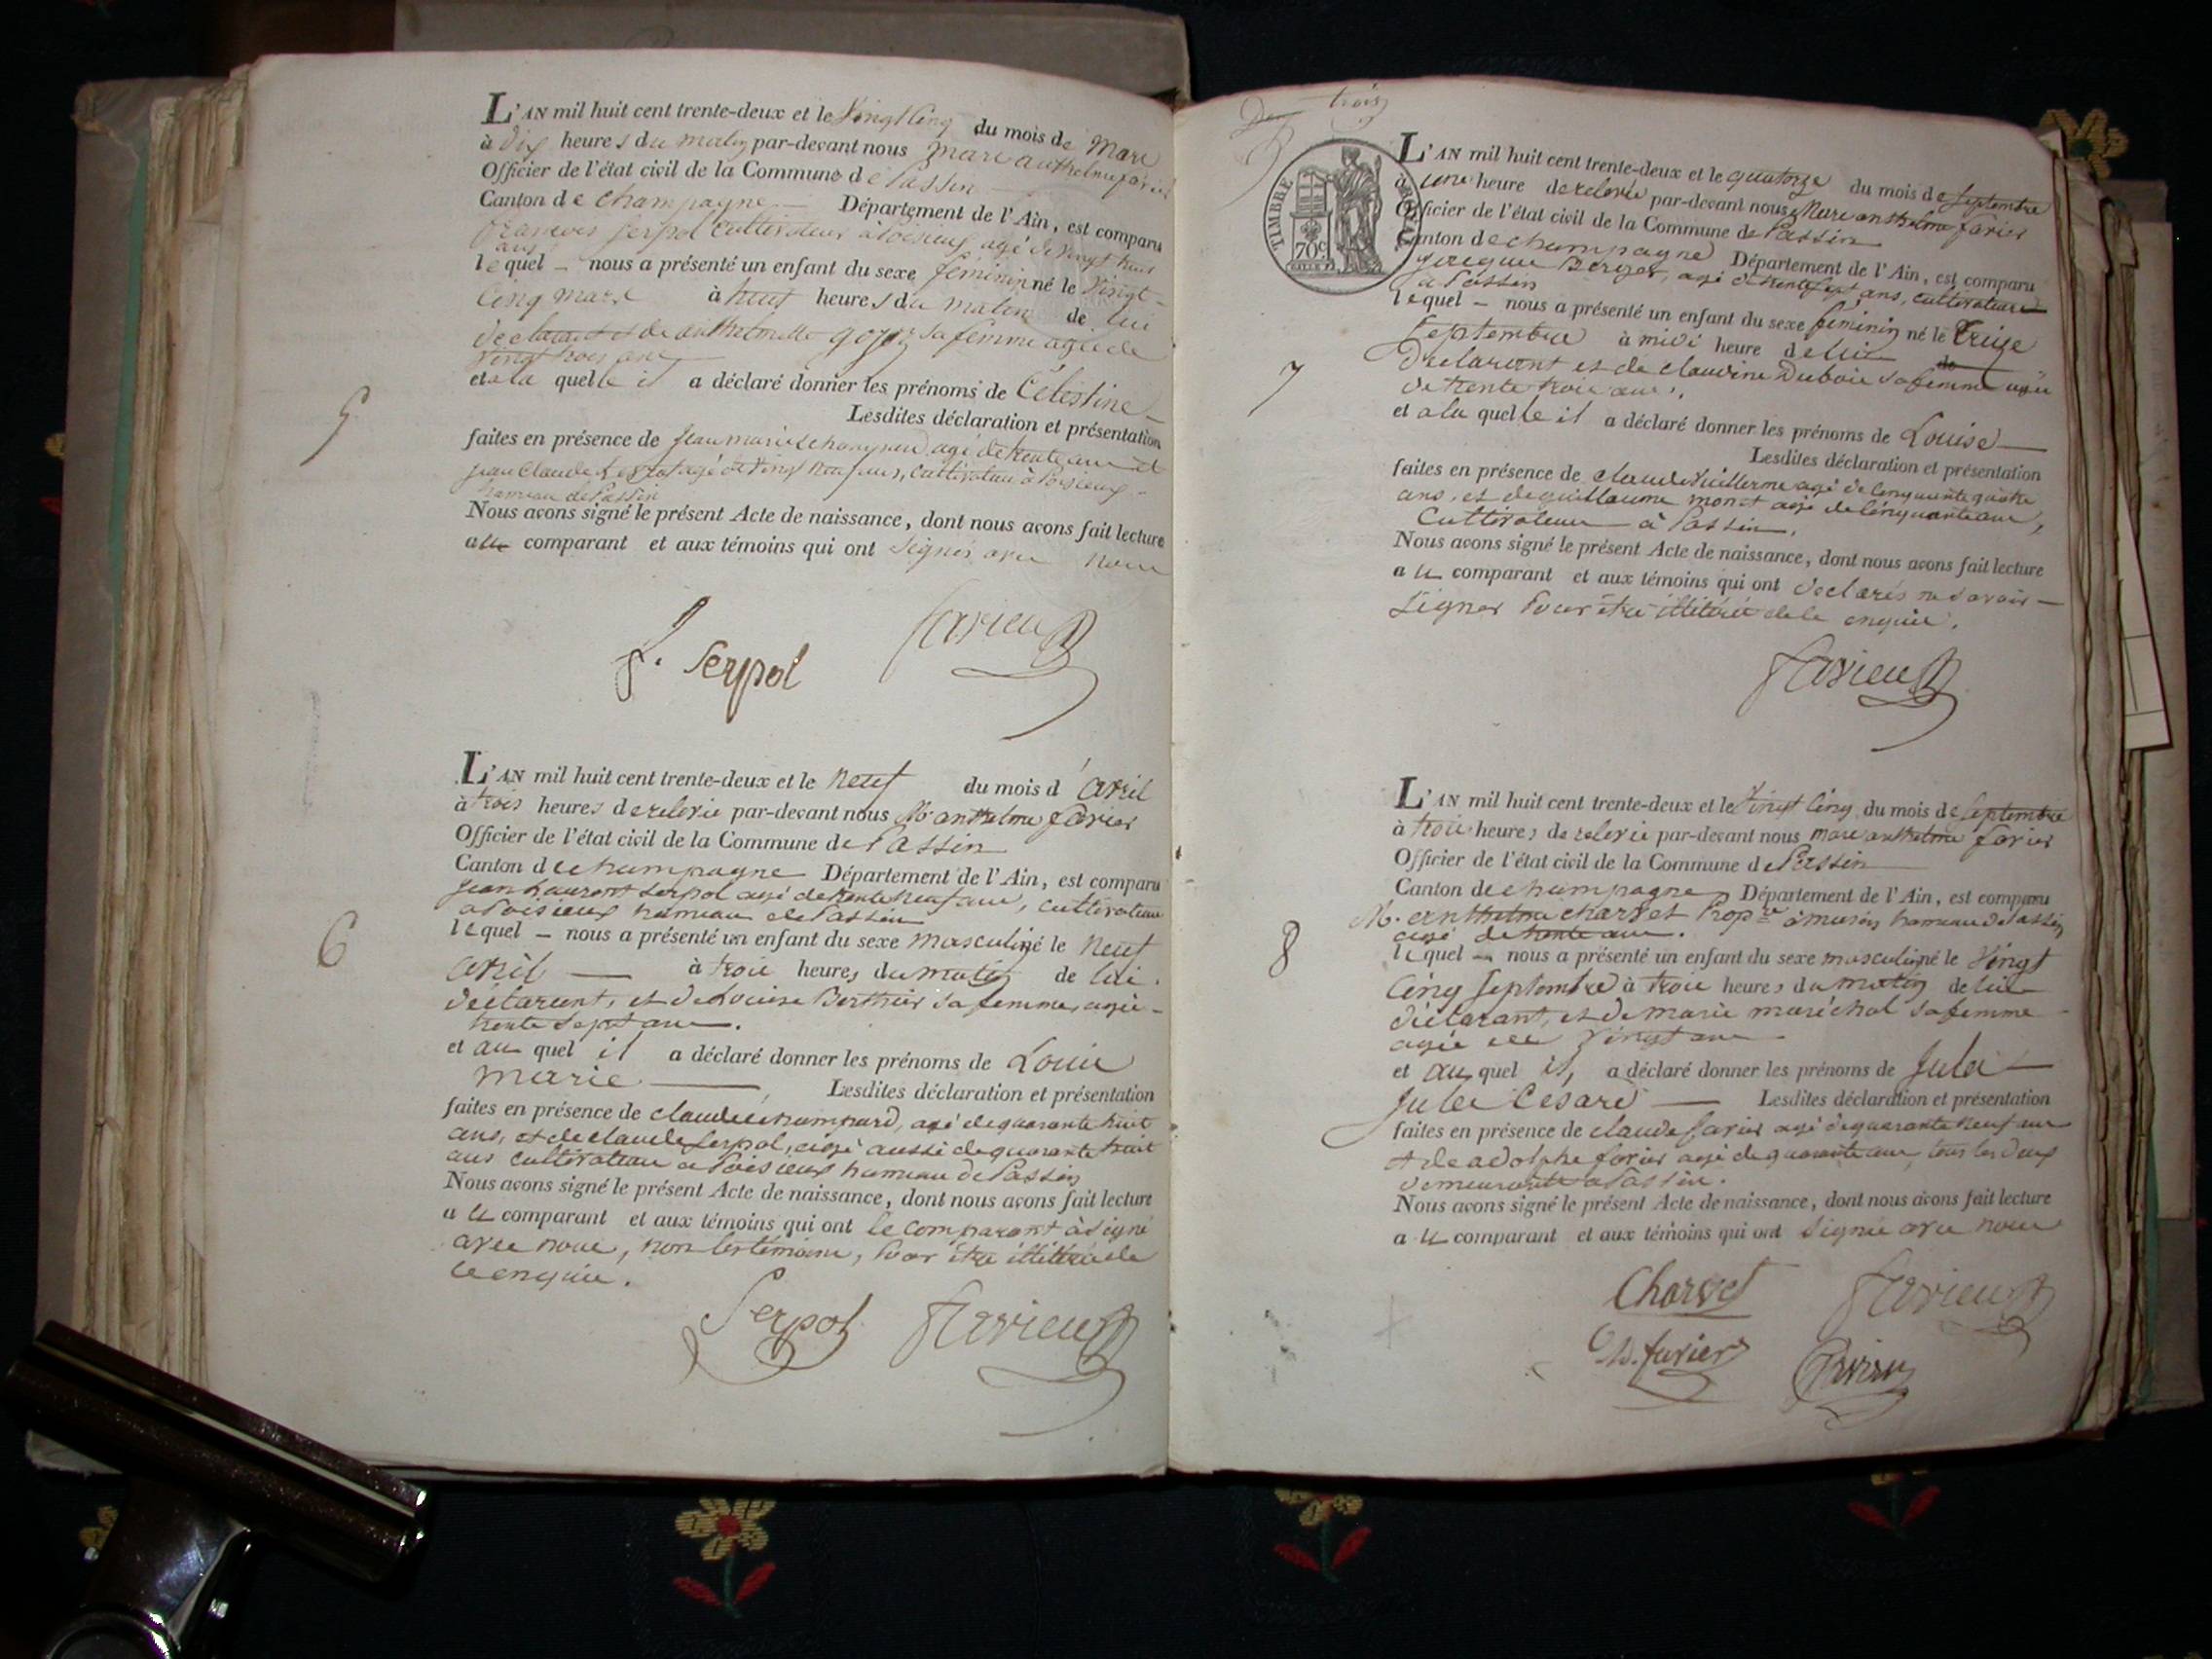 L'AN mil huit cent trente-deux et le vingt cinq du mois de mars
à dix heures du matin par-devant nous marc anthelme favier
Officier de l'état civil de la Commune de Passin
Canton de champagne Département de l'Ain, est comparu
françois serpol cultivateur à Poisieux agé de vingt huit
ans
lequel nous a présenté un enfant du sexe féminin né le vingt
cinq mars à neuf heures du matin de lui
déclarant et de anthelmette goyon sa femme agée de
vingt trois ans
et a la quelle il a déclaré donner les prénoms de Célestine
Lesdites déclaration et présentation
faites en présence de jean marie agé de trente ans et
jean Claude agé de vingt neuf ans, cultivateurs à Poisieux
hameau de Passin
Nous avons signé le présent Acte de naissance, dont nous avons fait lecture
au comparant et aux témoins qui ont signés avec nous
5
f. Serpol
favier
L'AN mil huit cent trente-deux et le neuf du mois d'avril
à trois heures de relevée par-devant nous M. anthelme favier
Officier de l'état civil de la Commune de Passin
Canton de champagne Département de l'Ain, est comparu
jean laurent serpol agé de trente neuf ans, cultivateur
a Poisieux hameau de Passin
lequel nous a présenté un enfant du sexe masculin né le neuf
avril à trois heures du matin de lui
déclarant, et de Louise Berthier sa femme, agée
trente sept ans.
et au quel il a déclaré donner les prénoms de Louis
marie Lesdites déclaration et présentation
faites en présence de claude champard, agé de quarante huit
ans, et de claude serpol, agé aussi de quarante huit
ans cultivateurs a Poisieux hameau de Passin
Nous avons signé le présent Acte de naissance, dont nous avons fait lecture
a le comparant et aux témoins qui ont le comparant à signé
avec nous, non les témoins, pour être illitéré de
ce enquis.
6
Serpol favier
trois
TIMBRE ROYAL
70 c.
L'AN mil huit cent trente-deux et le quatorze du mois de septembre
à une heure de relevée par-devant nous Marc anthelme favier
Officier de l'état civil de la Commune de Passin
Canton de champagne Département de l'Ain, est comparu
jacques Berger, agé de trente sept ans, cultivateur
a Passin
lequel nous a présenté un enfant du sexe féminin né le treize
septembre à midi heure de lui de
déclarant et de claudine Dubois sa femme agée
de trente trois ans.
et a la quelle il a déclaré donner les prénoms de Louise
Lesdites déclaration et présentation
faites en présence de claude Vuillerme agé de cinquante quatre
ans, et de guillaume monet agé de cinquante ans,
cultivateurs à Passin.
Nous avons signé le présent Acte de naissance, dont nous avons fait lecture
a le comparant et aux témoins qui ont déclarés ne savoir
signer pour être illitérés de le enquis.
7
favier
L'AN mil huit cent trente-deux et le vingt cinq du mois de septembre
à trois heures de relevée par-devant nous marc anthelme favier
Officier de l'état civil de la Commune de Passin
Canton de champagne Département de l'Ain, est comparu
M. anthelme charvet Propre à musin hameau de Passin
agé de trente ans.
lequel nous a présenté un enfant du sexe masculin né le vingt
cinq septembre à trois heures du matin de lui
déclarant, et de marie maréchal sa femme
agée de vingt ans
et au quel il, a déclaré donner les prénoms de Jules
Jules Cesare Lesdites déclaration et présentation
faites en présence de claude favier agé de quarante neuf ans
et de adolphe favier agé de quarante ans tous les deux
demeurants a Passin.
Nous avons signé le présent Acte de naissance, dont nous avons fait lecture
a le comparant et aux témoins qui ont signés avec nous
8
Charvet favier
favier favier